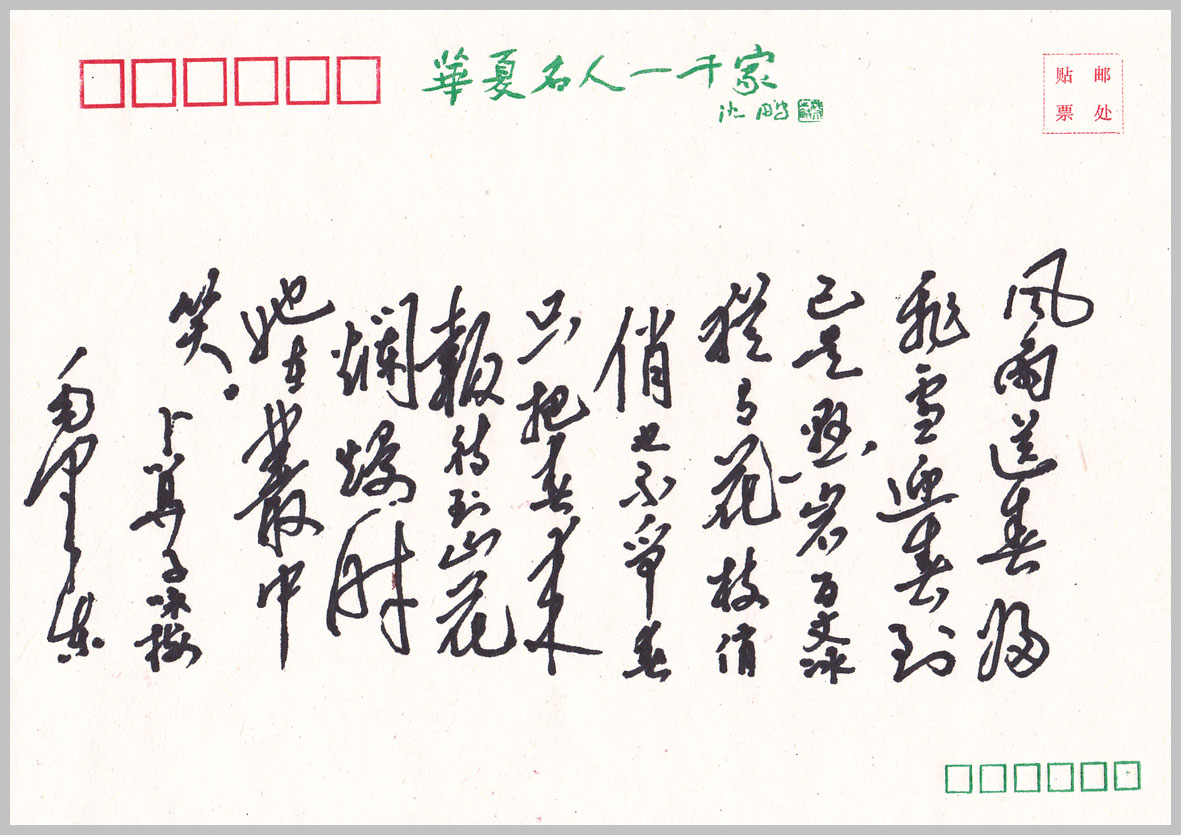 華夏名人一千家
沈鹏
贴邮
票处
风雨送春歸
飛雪迎春到
已是懸岩百丈冰
猶有花枝俏
俏也不爭春
只把春来
報待到山花
爛熳时
她在叢中
笑。
卜算子咏梅
毛泽东